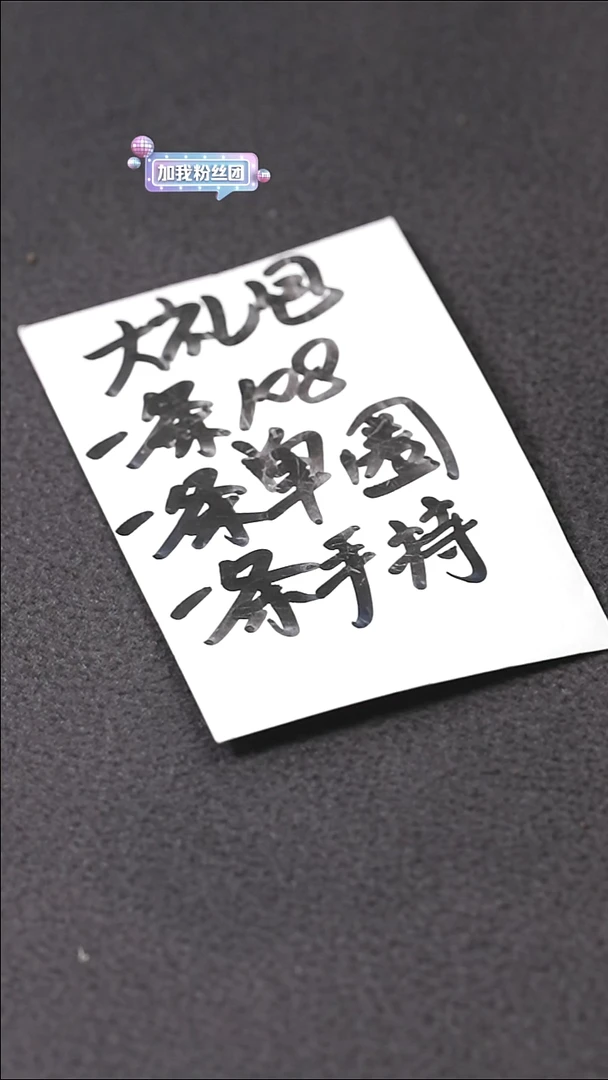 加我粉丝团
大礼包
一条108
一条单圈
一条手持